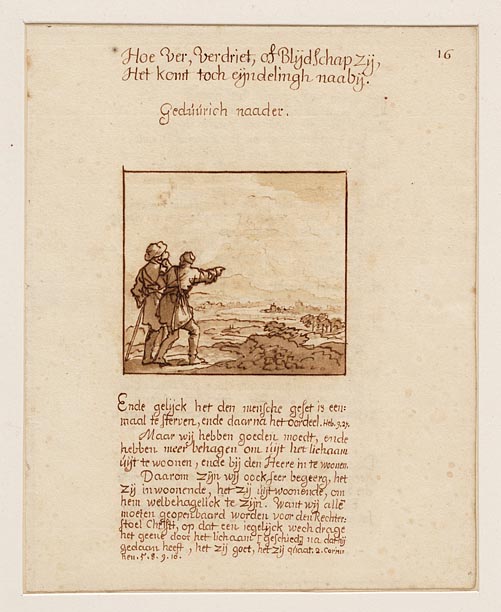 Hoe Ver, Verdriet, of Blijdschap zij,
16
Het komt toch eijndelingh naabij.
Geduurich naader.
Ende gelijck het den mensche geset is een=
maal te sterven, ende daarna het oordeel. Heb. 9. 27.
Maar wij hebben goeden moedt, ende
hebben meer behagen om uijt het lichaam
uijt te woonen, ende bij den Heere in te woonen.
Daarom zijn wij oock seer begeerg, het
zij inwoonende, het zij uijtwoonende, om
hem welbehagelick te zijn. Want wij alle
moeten geopenbaard worden voor den Rechter=
stoel Christi, op dat een iegelijck wech drage
het geene door het lichaam geschiedt, na dat hij
gedaan heeft, het zij goet, het zij quaat. 2. Corin=
5. 8. 9. 10.